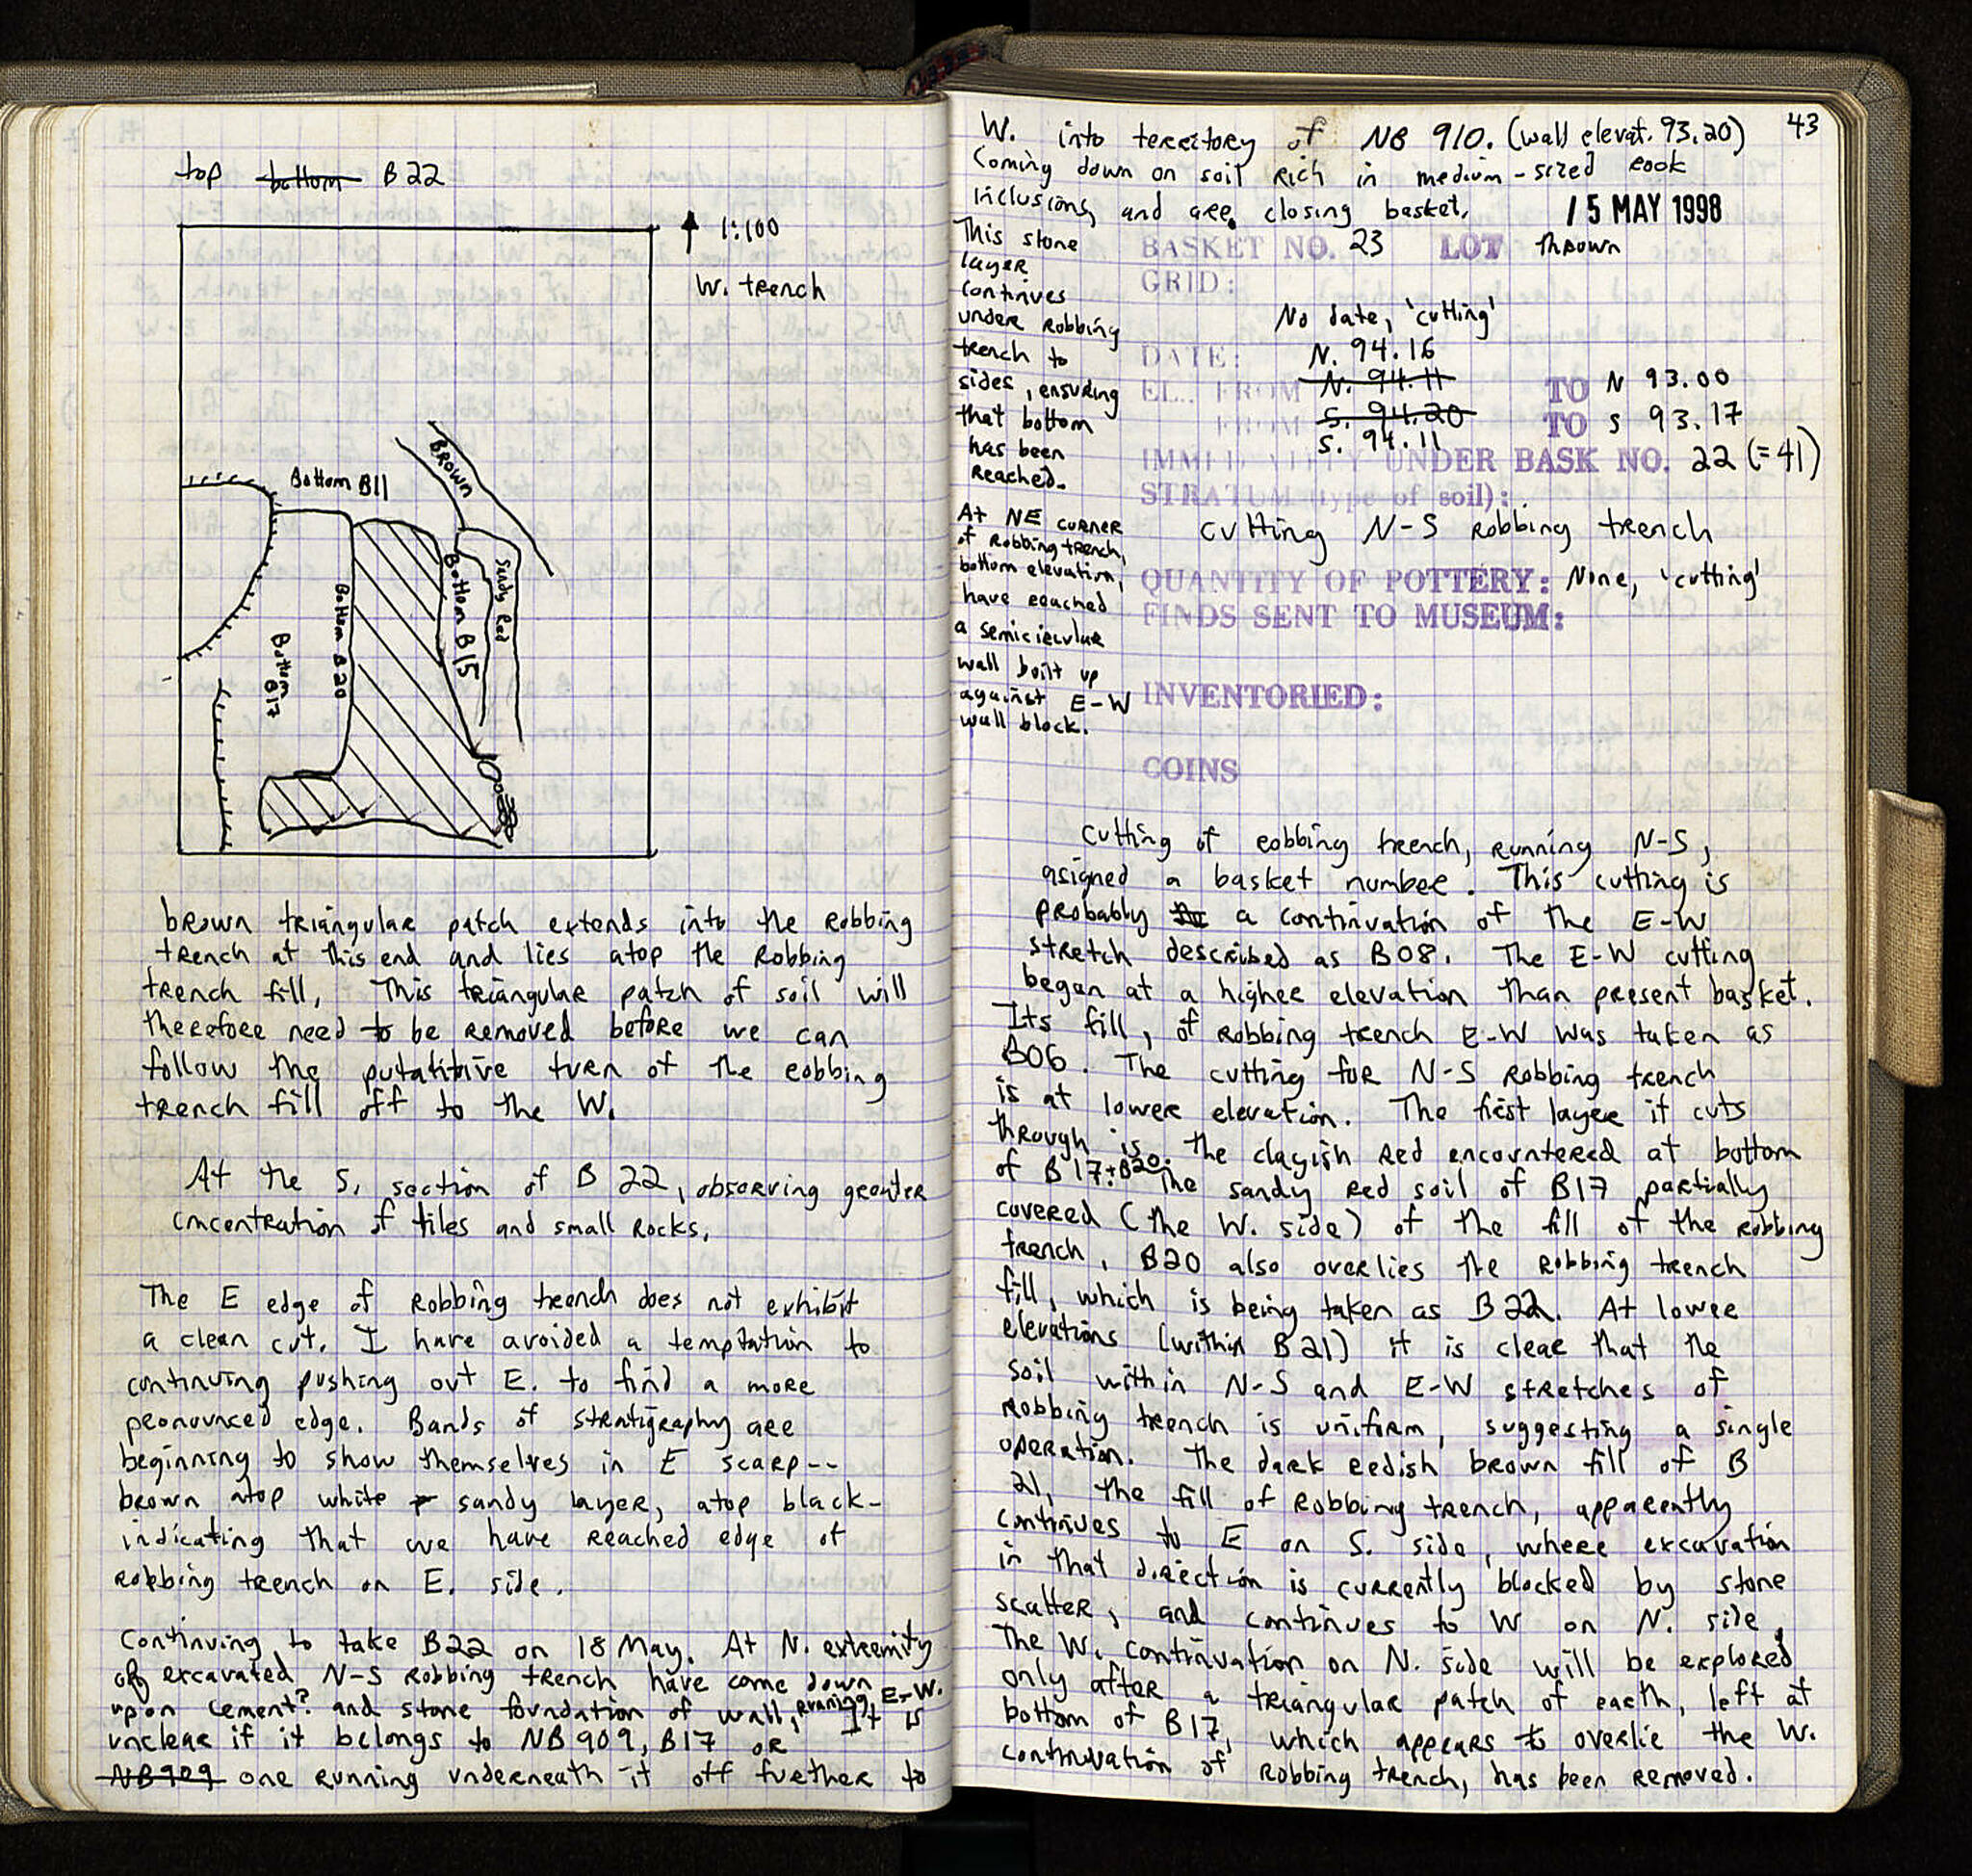 top ~~bottom~~ B22
1:100
W. trench
BROWN
Bottom B11
Bottom B15
Sandy Red
Bottom B20
Bottom B17
brown triangular patch extends into the Robbing
trench at this end and lies atop the Robbing
trench fill, This triangular patch of soil will
therefore need to be removed before we can
follow the putatitive turn of the robbing
trench fill off to the W.
At the S. section of B 22, observing greater
concentration of tiles and small rocks.
The E edge of Robbing trench does not exhibit
a clean cut. I have avoided a temptation to
continuing pushing out E. to find a more
pronounced edge. Bands of stratigraphy are
beginning to show themselves in E scarp--
brown atop white sandy layer, atop black-
indicating that we have reached edge of
robbing trench on E. side.
Continuing to take B22 on 18 May. At N. extremity
of excavated N-S Robbing trench have come down
upon cement? and stone foundation of wall, running E-W. It is
unclear if it belongs to NB 909, B17 or
~~NB909~~ one running underneath it off further to
43
W. into territory of NB 910. (wall elevat. 93.20)
Coming down on soil rich in medium-sized rock
inclusions, and are closing basket.
15 MAY 1998
This stone
layer
continues
under robbing
trench to
sides, ensuring
that bottom
has been
reached.
At NE corner
of Robbing trench,
bottom elevation,
have reached
a semicircular
wall built up
against E-W
wall block.
BASKET NO. 23 LOT thrown
GRID:
No date, 'cutting'
DATE: N. 94.16
EL. FROM ~~N. 94.11~~ TO N 93.00
FROM ~~S. 94.20~~ TO S 93.17
S. 94.11
IMMEDIATELY UNDER BASK NO. 22 (=41)
STRATUM (type of soil):
cutting N-S Robbing trench
QUANTITY OF POTTERY: None, 'cutting'
FINDS SENT TO MUSEUM:
INVENTORIED:
COINS
Cutting of robbing trench, running N-S,
asigned a basket number. This cutting is
probably ~~the~~ a continuation of the E-W
stretch described as B08. The E-W cutting
began at a higher elevation than present basket.
Its fill, of robbing trench E-W was taken as
B06. The cutting for N-S Robbing trench
is at lower elevation. The first layer it cuts
through is the clayish red encountered at bottom
of B17+B20. The sandy red soil of B17 partially
covered (the W. side) of the fill of the robbing
trench, B20 also overlies the Robbing trench
fill, which is being taken as B22. At lower
elevations (within B21) it is clear that the
soil within N-S and E-W stretches of
Robbing trench is uniform, suggesting a single
operation. The dark redish brown fill of B
21, the fill of Robbing trench, apparently
continues to E on S. side, where excavation
in that direction is currently blocked by stone
scatter, and continues to W on N. side.
The W. continuation on N. side will be explored
only after a triangular patch of earth, left at
bottom of B17, which appears to overlie the W.
continuation of robbing trench, has been removed.